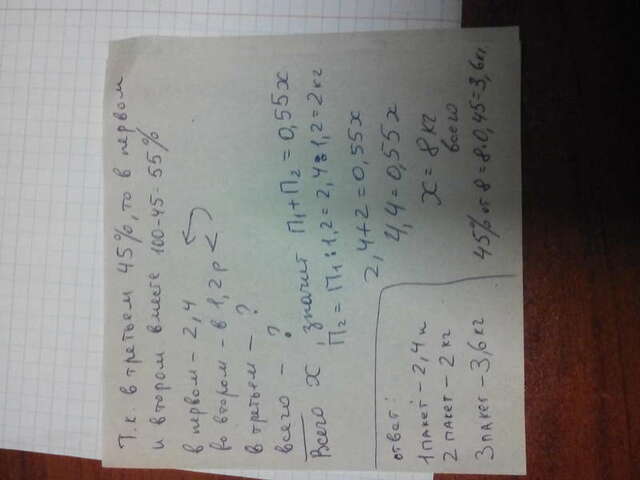 Т.к. в третьем 45%, то в первом
и втором вместе 100-45=55%
в первом - 2,4
во втором - в 1,2р <
в третьем - ?
всего - ?
Всего x, значит П1+П2 = 0,55x
П2 = П1:1,2 = 2,4:1,2 = 2кг
2,4+2 = 0,55x
4,4 = 0,55x
x = 8кг
всего
45% от 8 = 8·0,45 = 3,6кг
ответ:
1 пакет - 2,4 к
2 пакет - 2 кг
3 пакет - 3,6 кг